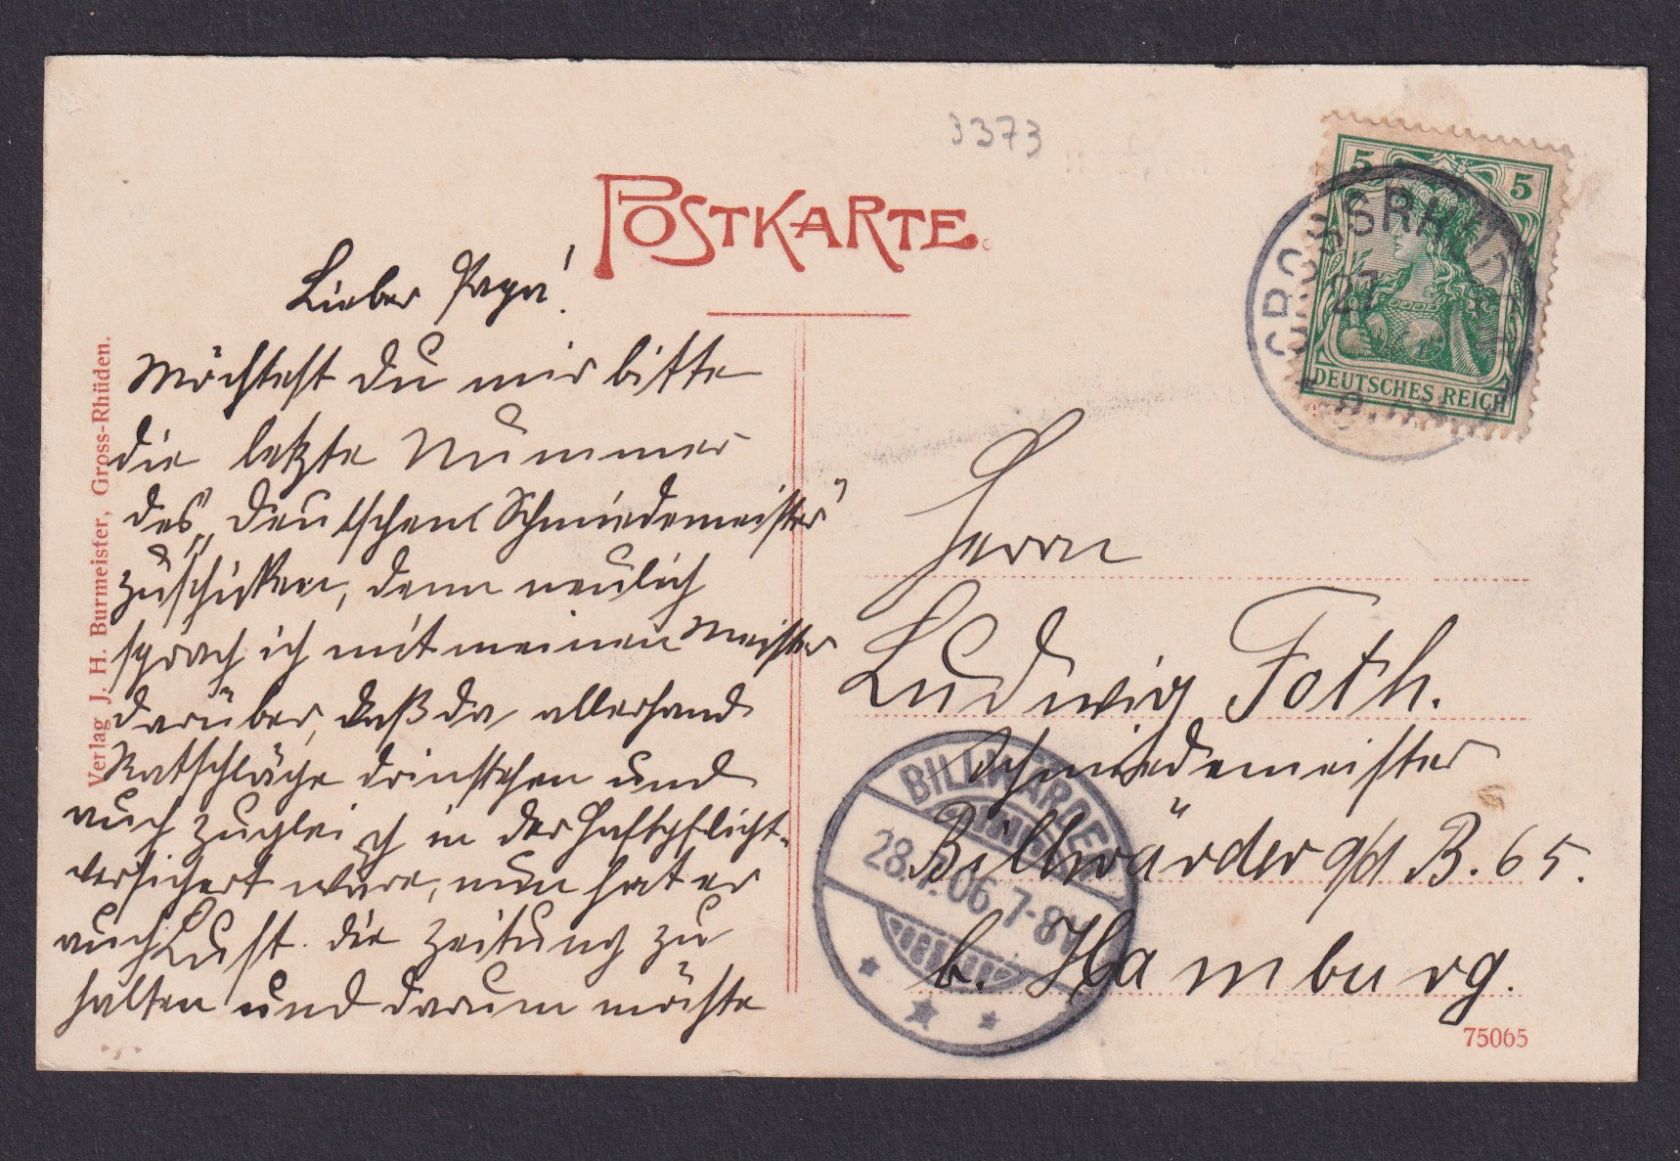 3373
POSTKARTE.
5 5
DEUTSCHES REICH
GROSSRHÜD
27
Verlag J. H. Burmeister, Gross-Rhüden.
Lieber Papa!
Möchtest du mir bitte
die letzte Nummer
des „Deutschen Schmiedemeister"
zuschicken, denn neulich
sprach ich mit meinen Meister
darüber, daß da allerhand
Ratschläge drinstehen und
auch zugleich in der Haftpflicht-
versichert wäre, nun hat er
auch Lust die Zeitung zu
halten und darum möchte
Herrn
Ludwig Foth.
Schmiedemeister
Billwärder a/d B. 65.
b. Hamburg.
BILLWÄRDER
28.7.06.7-8V
75065